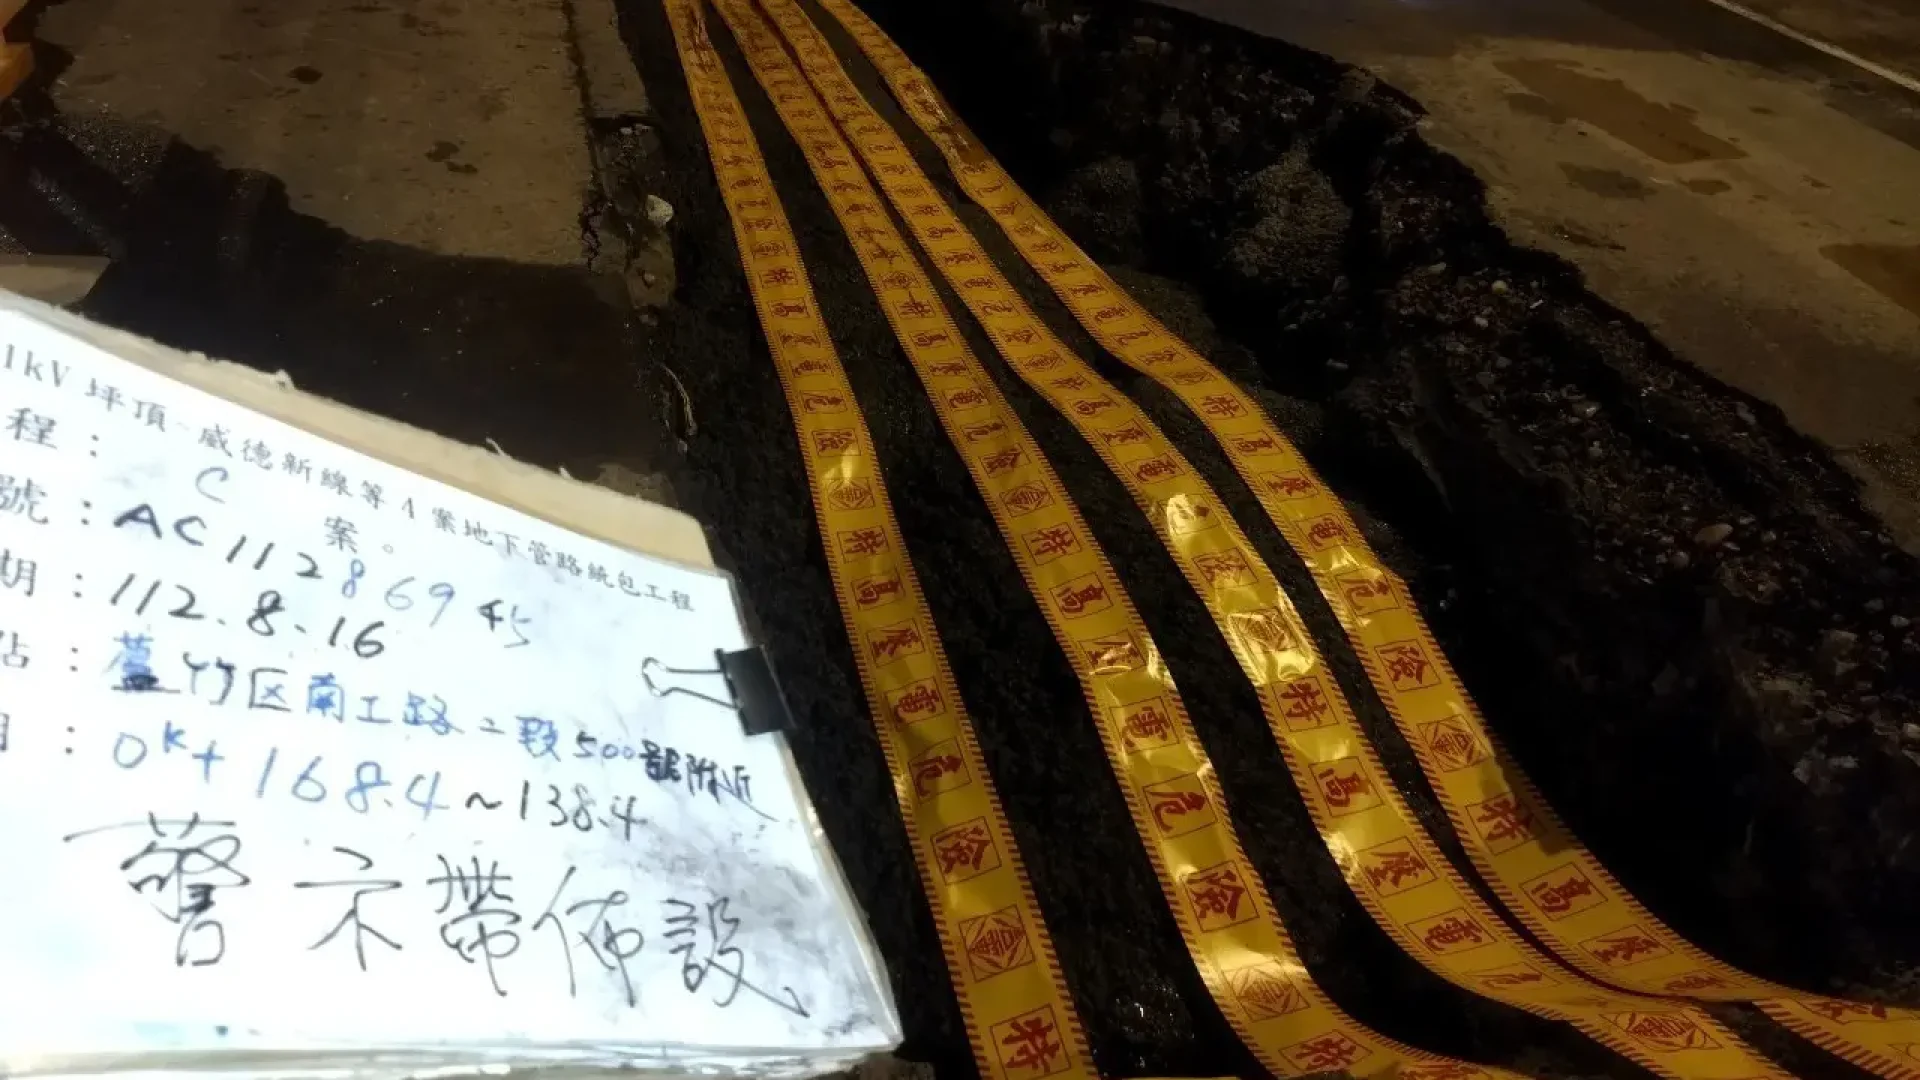 1kV 坪頂~威德新線等4案地下管路統包工程
程： C 案。
號：AC11286945
期：112.8.16
點：蘆竹区南工路二段500號附近
0K+168.4~138.4
警示帶佈設
特高壓電危險
特高壓電危險
特高壓電危險
特高壓電危險